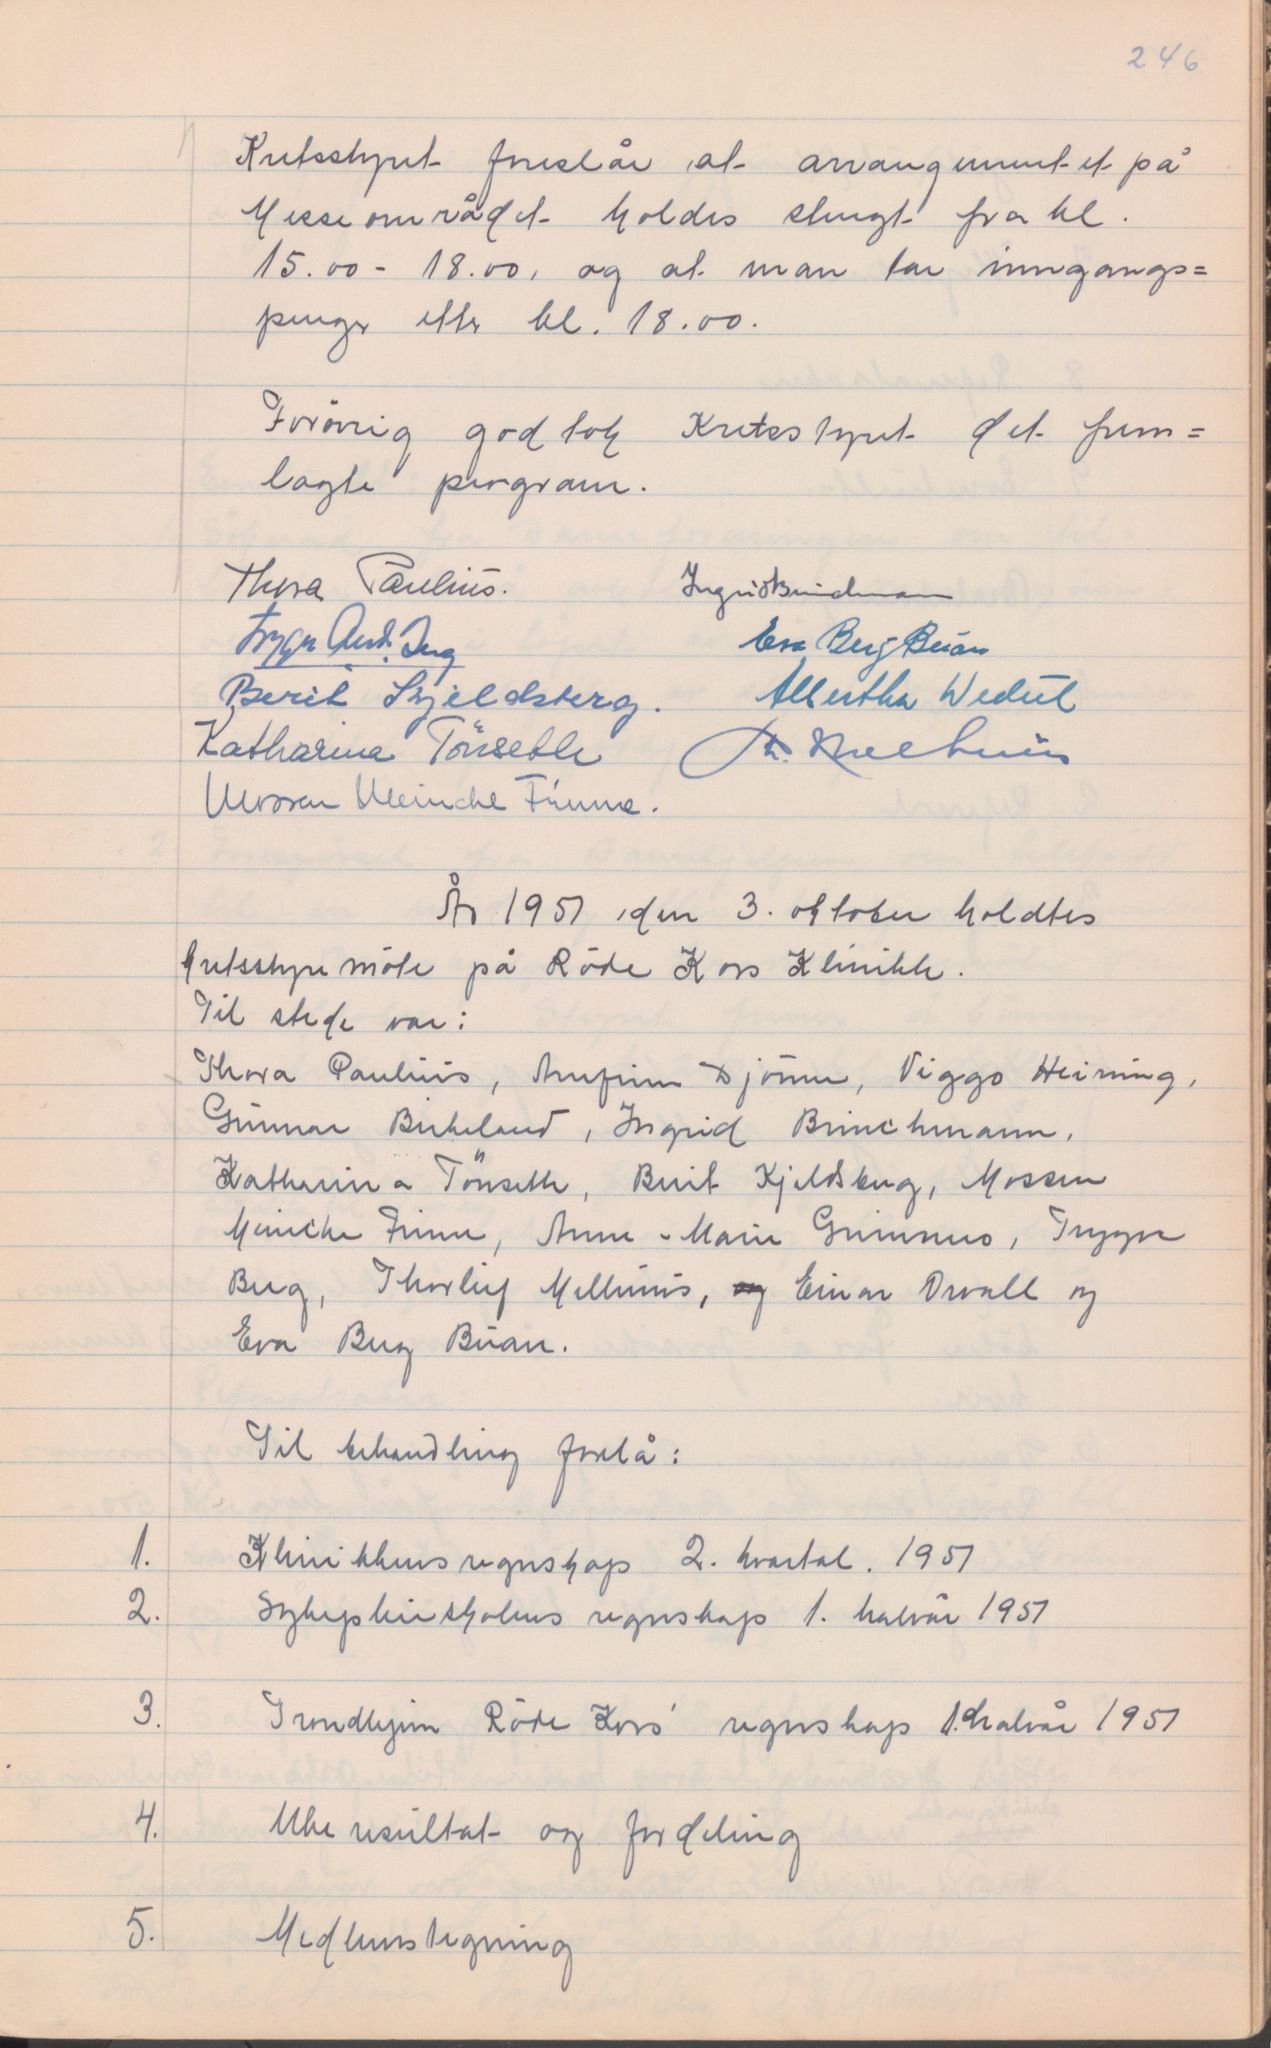 246
Kretsstyret foreslår at arrangementet på
Messeområdet holdes stengt fra kl.
15.00 - 18.00, og at man tar inngangs=
penger etter kl. 18.00.
Forövrig godtok Kretsstyret det frem=
lagte program.
Thora Paulius. Ingrid Brinchmann
Eva Berg Buan
Berit Kjeldsberg. Albertha Wedul
Katharina Tönseth
Mossen Meincke Finne.
År 1951 den 3. oktober holdtes
kretsstyremöte på Röde Kors Klinikk.
Til stede var:
Thora Paulius, Arnfinn Djönne, Viggo Heining,
Gunnar Birkeland, Ingrid Brinchmann,
Katharina Tönseth, Berit Kjeldsberg, Mossen
Meincke Finne, Anne-Marie Trygve
Berg, Thorleif Mellbuus, og Einar Orvall og
Eva Berg Buan.
Til behandling forelå:
1. Klinikkens regnskap 2. kvartal. 1951
2. Sykepleieskolens regnskap 1. halvår 1951
3. Trondhjem Röde Kors' regnskap 1. halvår 1951
4. Uke resultat og fordeling
5. Medlemstegning